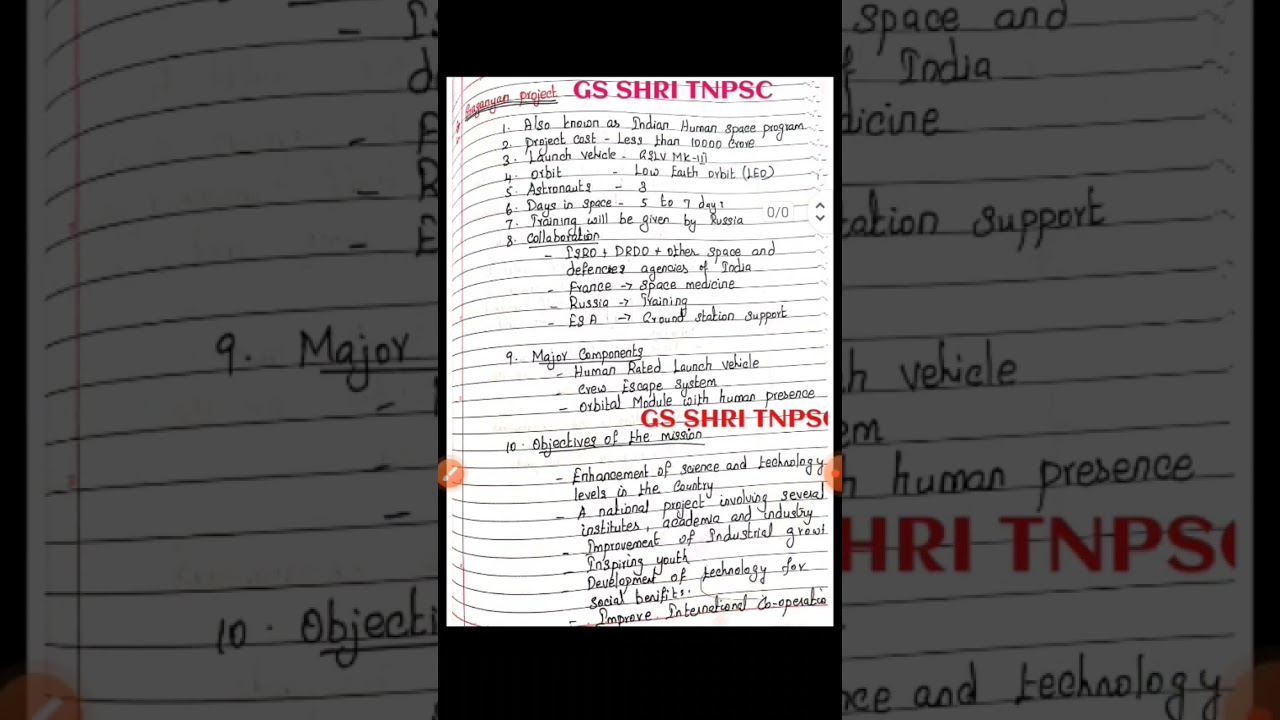 GS SHRI TNPSC
Gaganyan project
1. Also known as Indian Human space program
2. Project cost - Less than 10000 crore
3. Launch vehicle - GSLV MK-III
4. Orbit - Low Earth orbit (LEO)
5. Astronauts - 3
6. Days in space - 5 to 7 days
7. Training will be given by Russia
0/0
8. Collaboration
- ISRO + DRDO + other space and
defences agencies of India
- France -> space medicine
- Russia -> Training
- ESA -> Ground station support
9. Major Components
- Human Rated Launch vehicle
- Crew Escape system
- Orbital Module with human presence
GS SHRI TNPSC
10. Objectives of the mission
- Enhancement of science and technology
levels in the country
- A national project involving several
institutes, academia and industry
- Improvement of Industrial growt
- Inspiring youth
- Development of technology for
social benifits.
- Improve International Co-operatio
space and
India
dicine
ation support
9. Major
h vehicle
em
human presence
HRI TNPS
10. Objecti
ce and technology